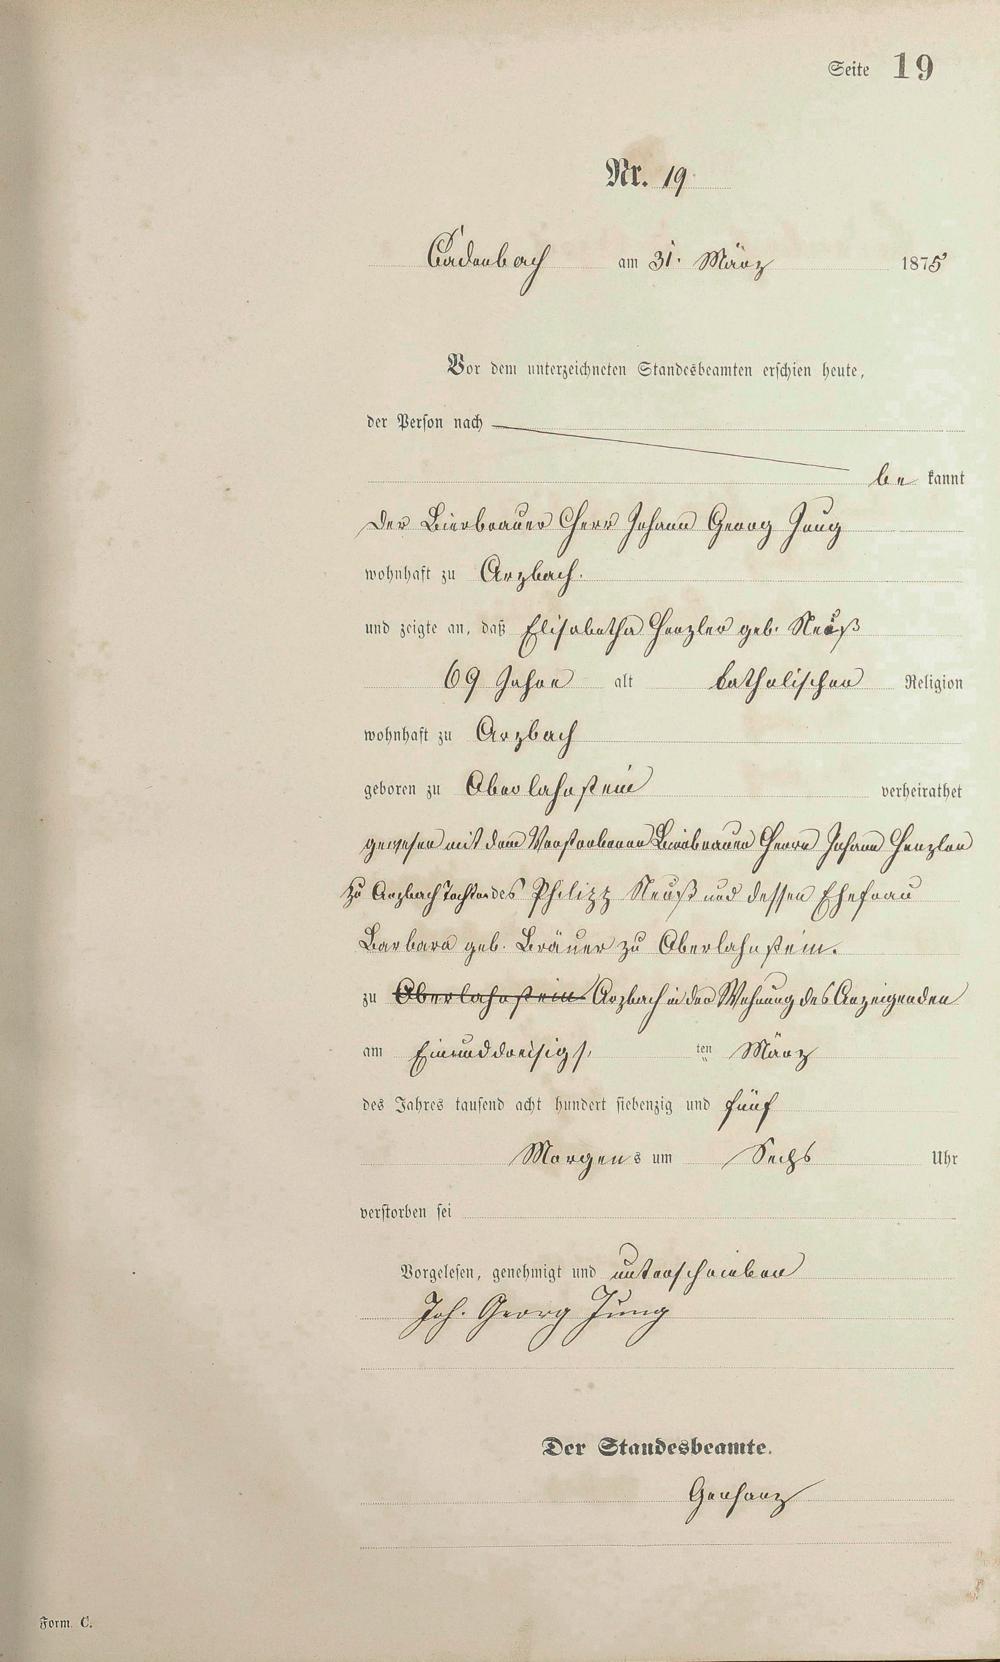 Seite 19
Nr. 19
Cadenbach am 31. März 1875
Vor dem unterzeichneten Standesbeamten erschien heute,
der Person nach
be kannt
der Bierbrauer Herr Johann Georg Jung
wohnhaft zu Arzbach.
und zeigte an, daß Elisabetha Henzler geb. Neuß
69 Jahre alt katholischen Religion
wohnhaft zu Arzbach
geboren zu Oberlahnstein verheirathet
gewesen mit dem Verstorbenen Bierbrauer Herrn Johann Henzler
zu Arzbach Tochter des Philipp Neuß und dessen Ehefrau
Barbara geb. Bräuer zu Oberlahnstein.
zu Oberlahnstein Arzbach in der Wohnung des Anzeigenden
am Einunddreisigs, ten März
des Jahres tausend acht hundert siebenzig und fünf
Morgens um Sechs Uhr
verstorben sei
Vorgelesen, genehmigt und unterschrieben
Joh. Georg Jung
Der Standesbeamte.
Gerharz
Form. C.